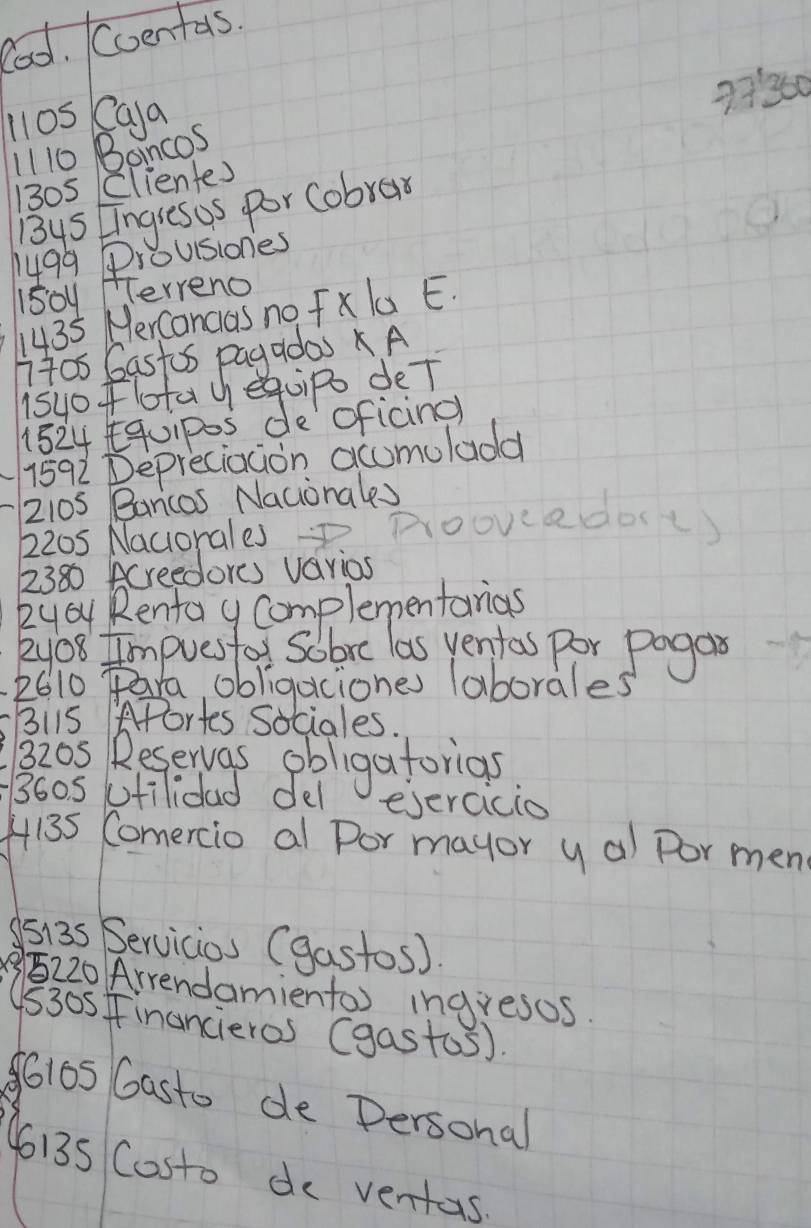 Cod. Cuentas.
77'300
1105 Caja
1110 Bancos
1305 Clientes
1345 Ingresos por Cobrar
1499 Provisiones
1504 Terreno
1435 Mercancias no F X la E.
1705 Gastos pagados X A
1540 Flota y equipo de T
1524 Equipos de oficina
1592 Depreciación acumulada
2105 Bancos Nacionales
2205 Nacionales → Prooveedores
2380 Acreedores varios
2404 Renta y Complementarias
2408 Impuestos Sobre las ventas por pagar
2610 Para obligaciones laborales
3115 Aportes Sociales.
3205 Reservas obligatorias
3605 Utilidad del ejercicio
4135 Comercio al Por mayor y al Por men
5135 Servicios (gastos).
5220 Arrendamientos ingresos.
5305 Financieros (gastos).
6105 Gasto de Personal
6135 Costo de ventas.